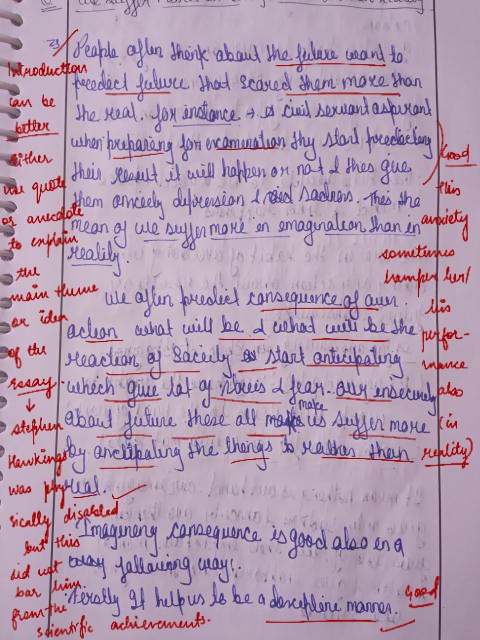 we suffer more in imagination than in reality
People often think about the future want to
predect future that scared them more than
the real. for instance → a civil servant aspirant
when preparing for examination thy start predecting
their result it will happen or not & thes give
them anxiety depression & sadness. This the
mean of we suffer more in emagenation than in
reality.
We often predict consequence of our
action what will be & what will be the
reaction of Society & start anticipating
which give lot of stress & fear. Our insecurity
about future these all make us suffer more
by anticipating the things to rather than
real.
Imagineng consequence is good also en a
following way:
It help us to be a descepline manner.
Introduction
can be
better
either
use quote
or anecdote
to explain
the
main theme
or idea
of the
essay.
↓
stephen
Hawkings
was phy
sically disabled
but this
did not
bar him
from the
scientific achievements.
Good
this
anxiety
sometimes
hamper her/
his
perfor-
mance
also
(in
reality)
Good